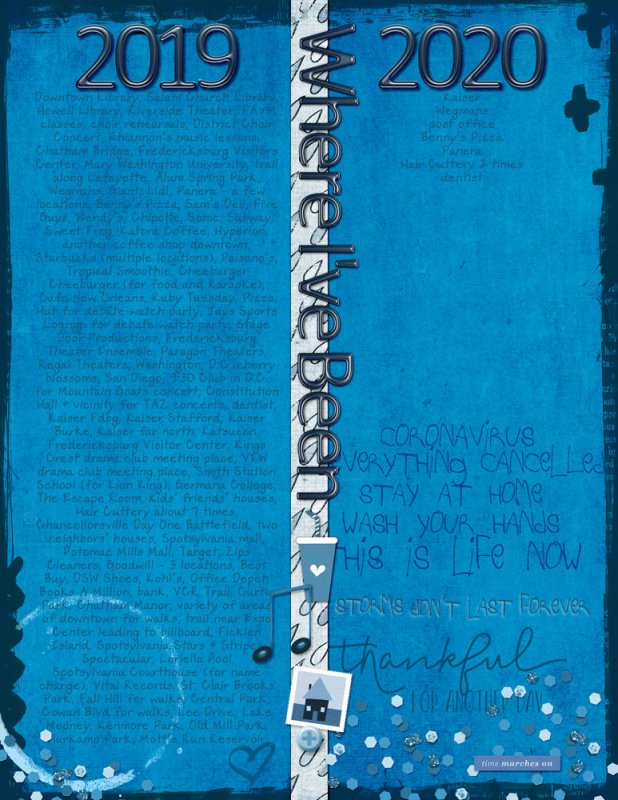 2019
Downtown Library, Salem Church Library,
Howell Library, Riverside Theater, FAYM
classes, choir rehearsals, District Choir
Concert, Rhiannon's music lessons,
Chatham Bridge, Fredericksburg Visitors
Center, Mary Washington University, trail
along Lafayette, Alum Spring Park,
Wegmans, Giant, Lidl, Panera - a few
locations, Benny's Pizza, Sam's Deb, Five
Guys, Wendy's, Chipotle, Sonic, Subway,
Sweet Frog, Katora Coffee, Hyperion,
another coffee shop downtown,
Starbucks (multiple locations), Paisano's,
Tropical Smoothie, Cheeburger
Cheeburger (for food and karaoke),
Cafe New Orleans, Ruby Tuesday, Pizza
Hut for debate watch party, Jay's Sports
Lounge for debate watch party, Stage
Door Productions, Fredericksburg
Theater Ensemble, Paragon Theaters,
Regal Theaters, Washington, D.C. cherry
blossoms, San Diego, 930 Club in D.C.
for Mountain Goats concert, Constitution
Hall + vicinity for TAZ concerts, dentist,
Kaiser Fdbg, Kaiser Stafford, Kaiser
Burke, Kaiser far north, Katsucon,
Fredericksburg Visitor Center, Kings
Crest drama club meeting place, VFW
drama club meeting place, Smith Station
School (for Lion King), Germana College,
The Escape Room, Kids' friends' houses,
Hair Cuttery about 7 times,
Chancellorsville Day One Battlefield, two
neighbors' houses, Spotsylvania mall,
Potomac Mills Mall, Target, Zips
Cleaners, Goodwill - 3 locations, Best
Buy, DSW Shoes, Kohl's, Office Depot,
Books A Million, bank, VCR Trail, Curtis
Park, Chatham Manor, variety of areas
of downtown for walks, trail near Expo
Center leading to billboard, Ficklen
Island, Spotsylvania Stars + Stripes
Spectacular, Loriella Pool
Spotsylvania Courthouse (for name
change), Vital Records, St. Clair Brooks
Park, Fall Hill for walks, Central Park,
Cowan Blvd for walks, Lee Drive, Lake
Mooney, Kenmore Park, Old Mill Park,
Duirkamp Park, Mott's Run Reservoir
Where I've Been
2020
Kaiser
Wegmans
post office
Benny's Pizza
Panera
Hair Cuttery 2 times
dentist
CORONAVIRUS
EVERYTHING CANCELLED
STAY AT HOME
WASH YOUR HANDS
THIS IS LIFE NOW
STORMS DON'T LAST FOREVER
thankful
FOR ANOTHER DAY
time marches on